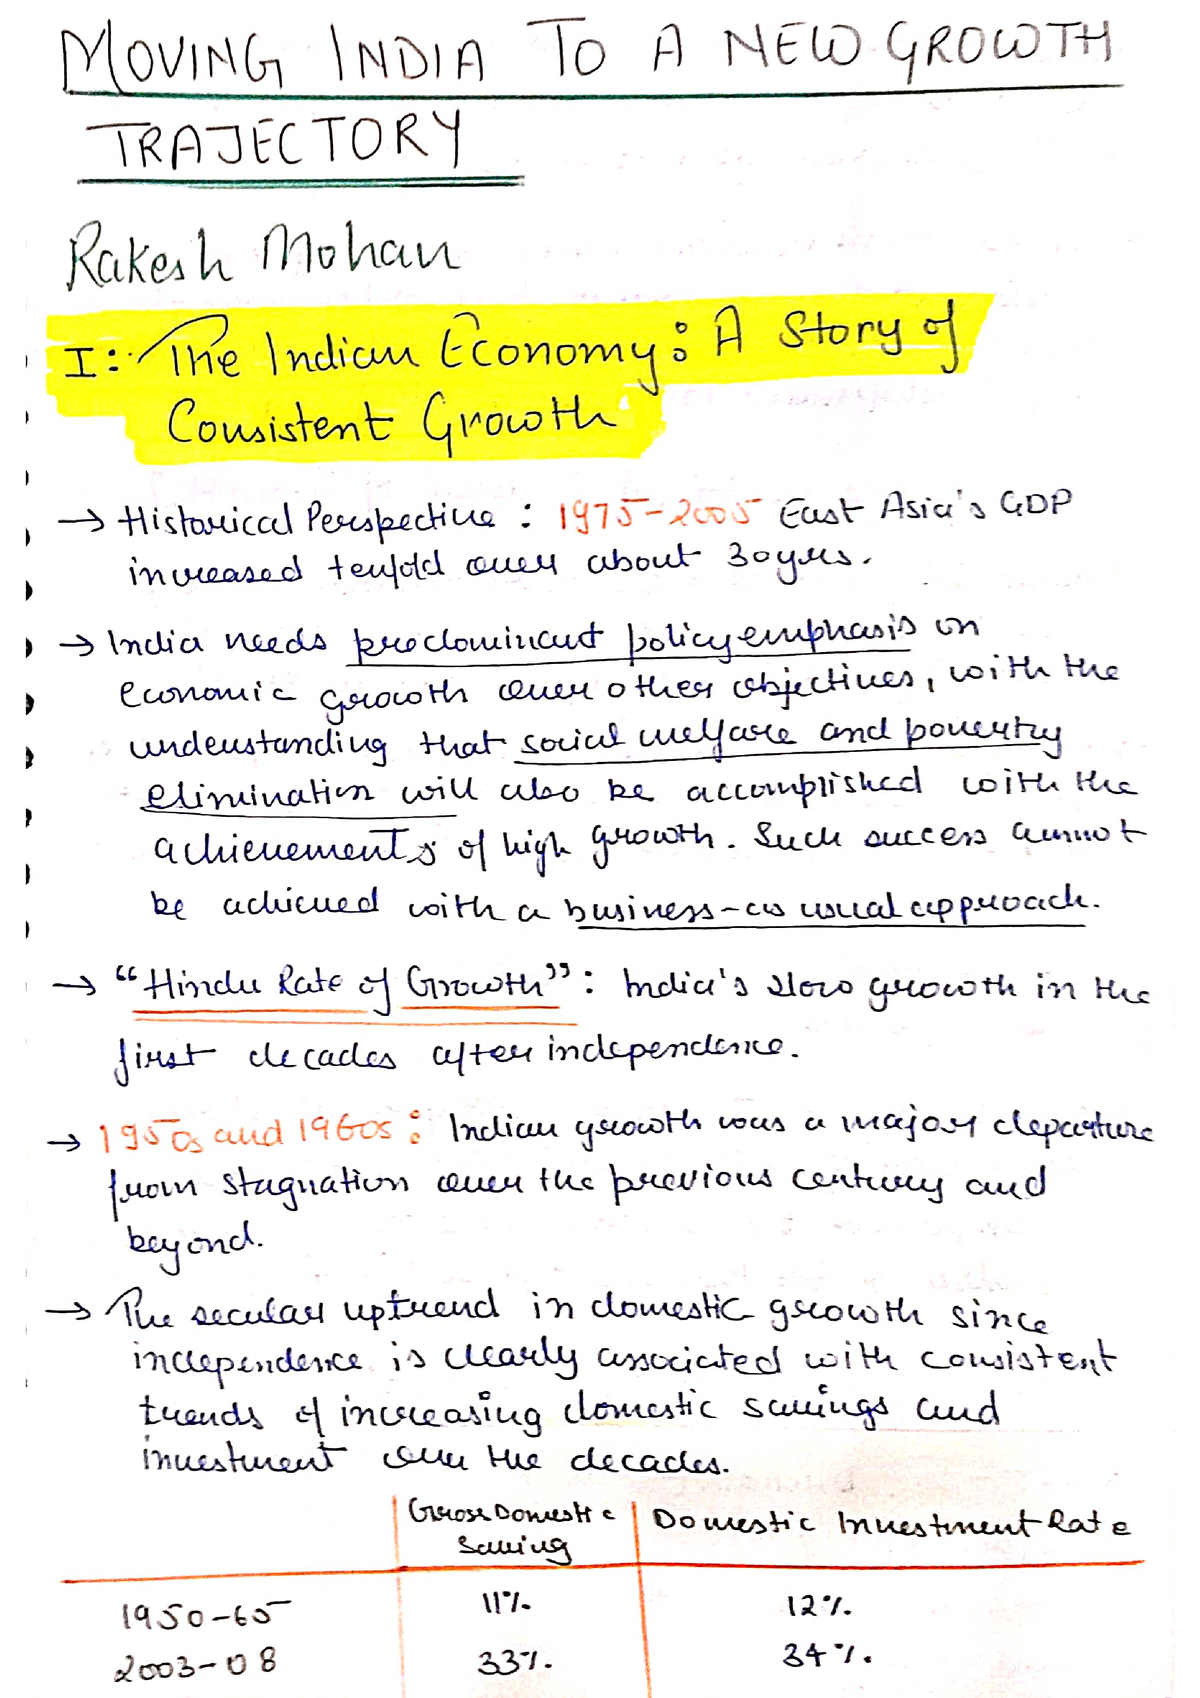 MOVING INDIA TO A NEW GROWTH
TRAJECTORY
Rakesh Mohan
I: The Indian Economy: A Story of
Consistent Growth
→ Historical Perspective : 1975-2005 East Asia's GDP
increased tenfold over about 30yrs.
→ India needs predominant policy emphasis on
economic growth over other objectives, with the
understanding that social welfare and povertry
elimination will also be accomplished with the
achievements of high growth. Such success cannot
be achieved with a business-as usual approach.
→ "Hindu Rate of Growth": India's slow growth in the
first decades after independence.
→ 1950s and 1960s: Indian growth was a major departure
from stagnation over the previous century and
beyond.
→ The secular uptrend in domestic growth since
independence is clearly associated with consistent
trends of increasing domestic savings and
investment over the decades.
Gross Domestic Saving | Domestic Investment Rate
1950-65 11% 12%
2003-08 33% 34%